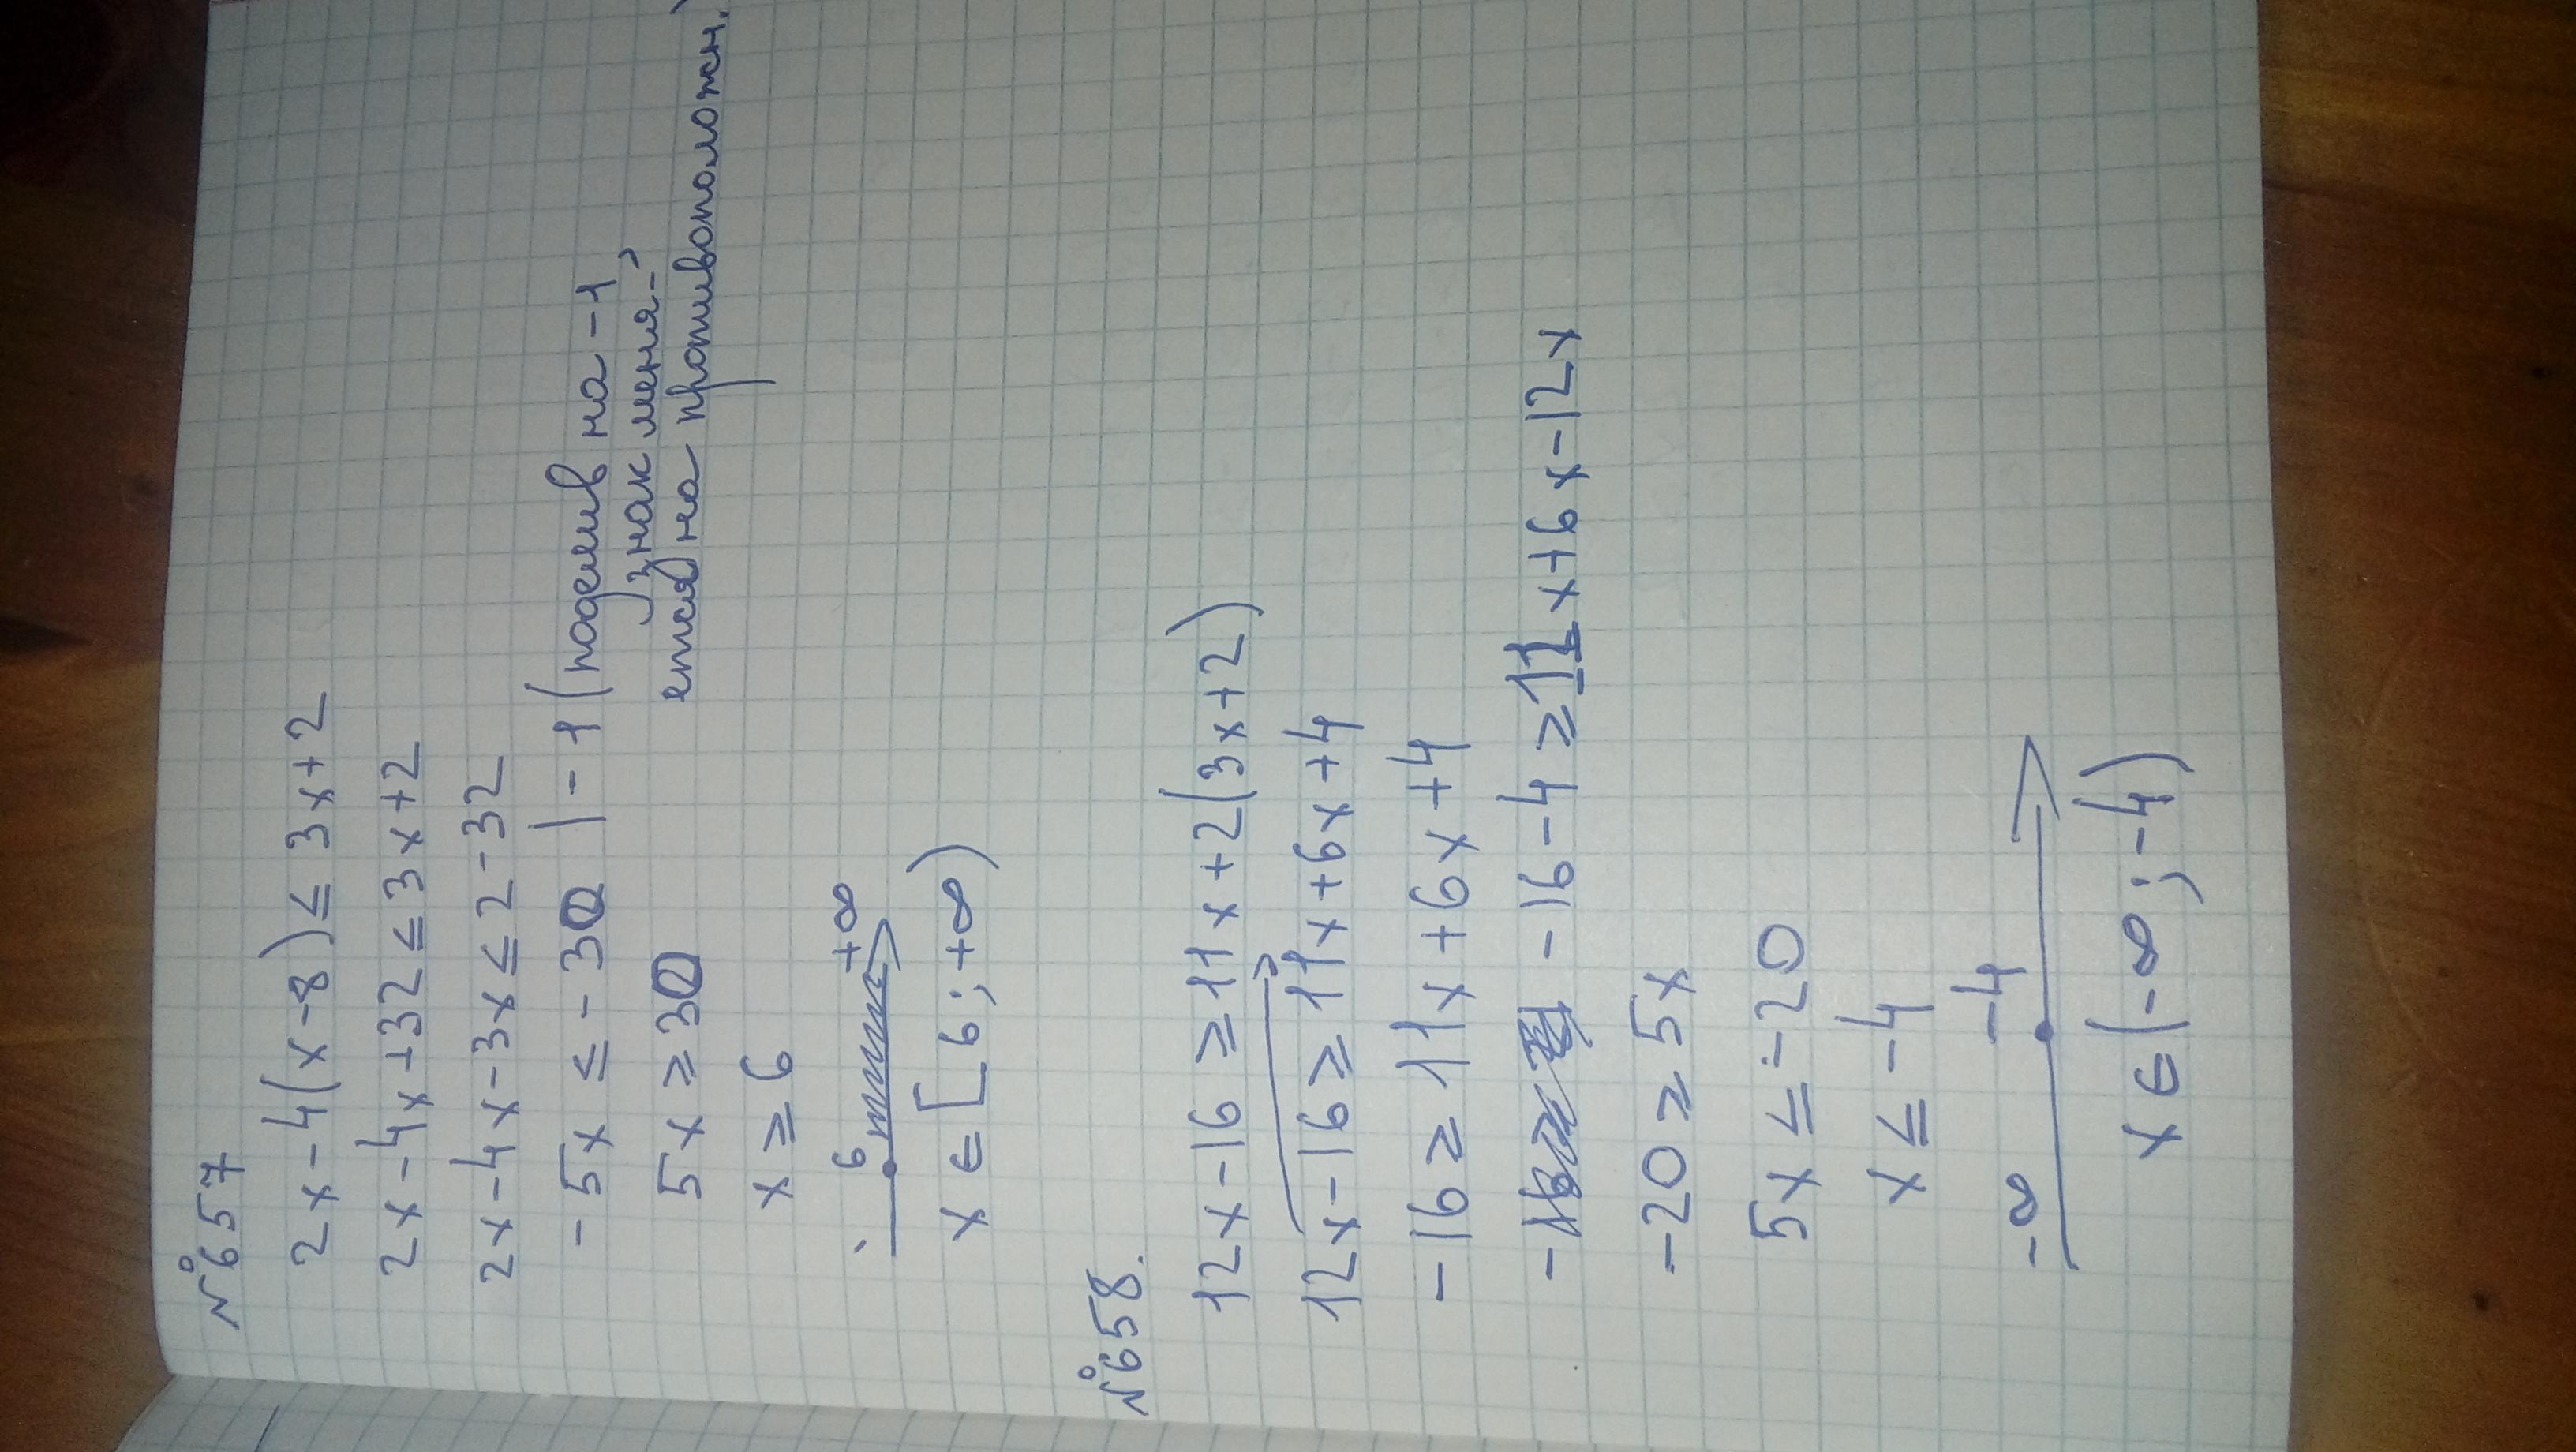 №657
2x-4(x-8)≤3x+2
2x-4x+32≤3x+2
2x-4x-3x≤2-32
-5x≤-30 |-1(поделив на -1
знак меня-
ется на противоположн.)
5x≥30
x≥6
6 +∞
x∈[6;+∞)
№658.
12x-16≥11x+2(3x+2)
12x-16≥11x+6x+4
-16≥11x+6x+4
-16-4≥11x+6x-12x
-20≥5x
5x≤-20
x≤-4
-∞ -4
x∈(-∞;-4)